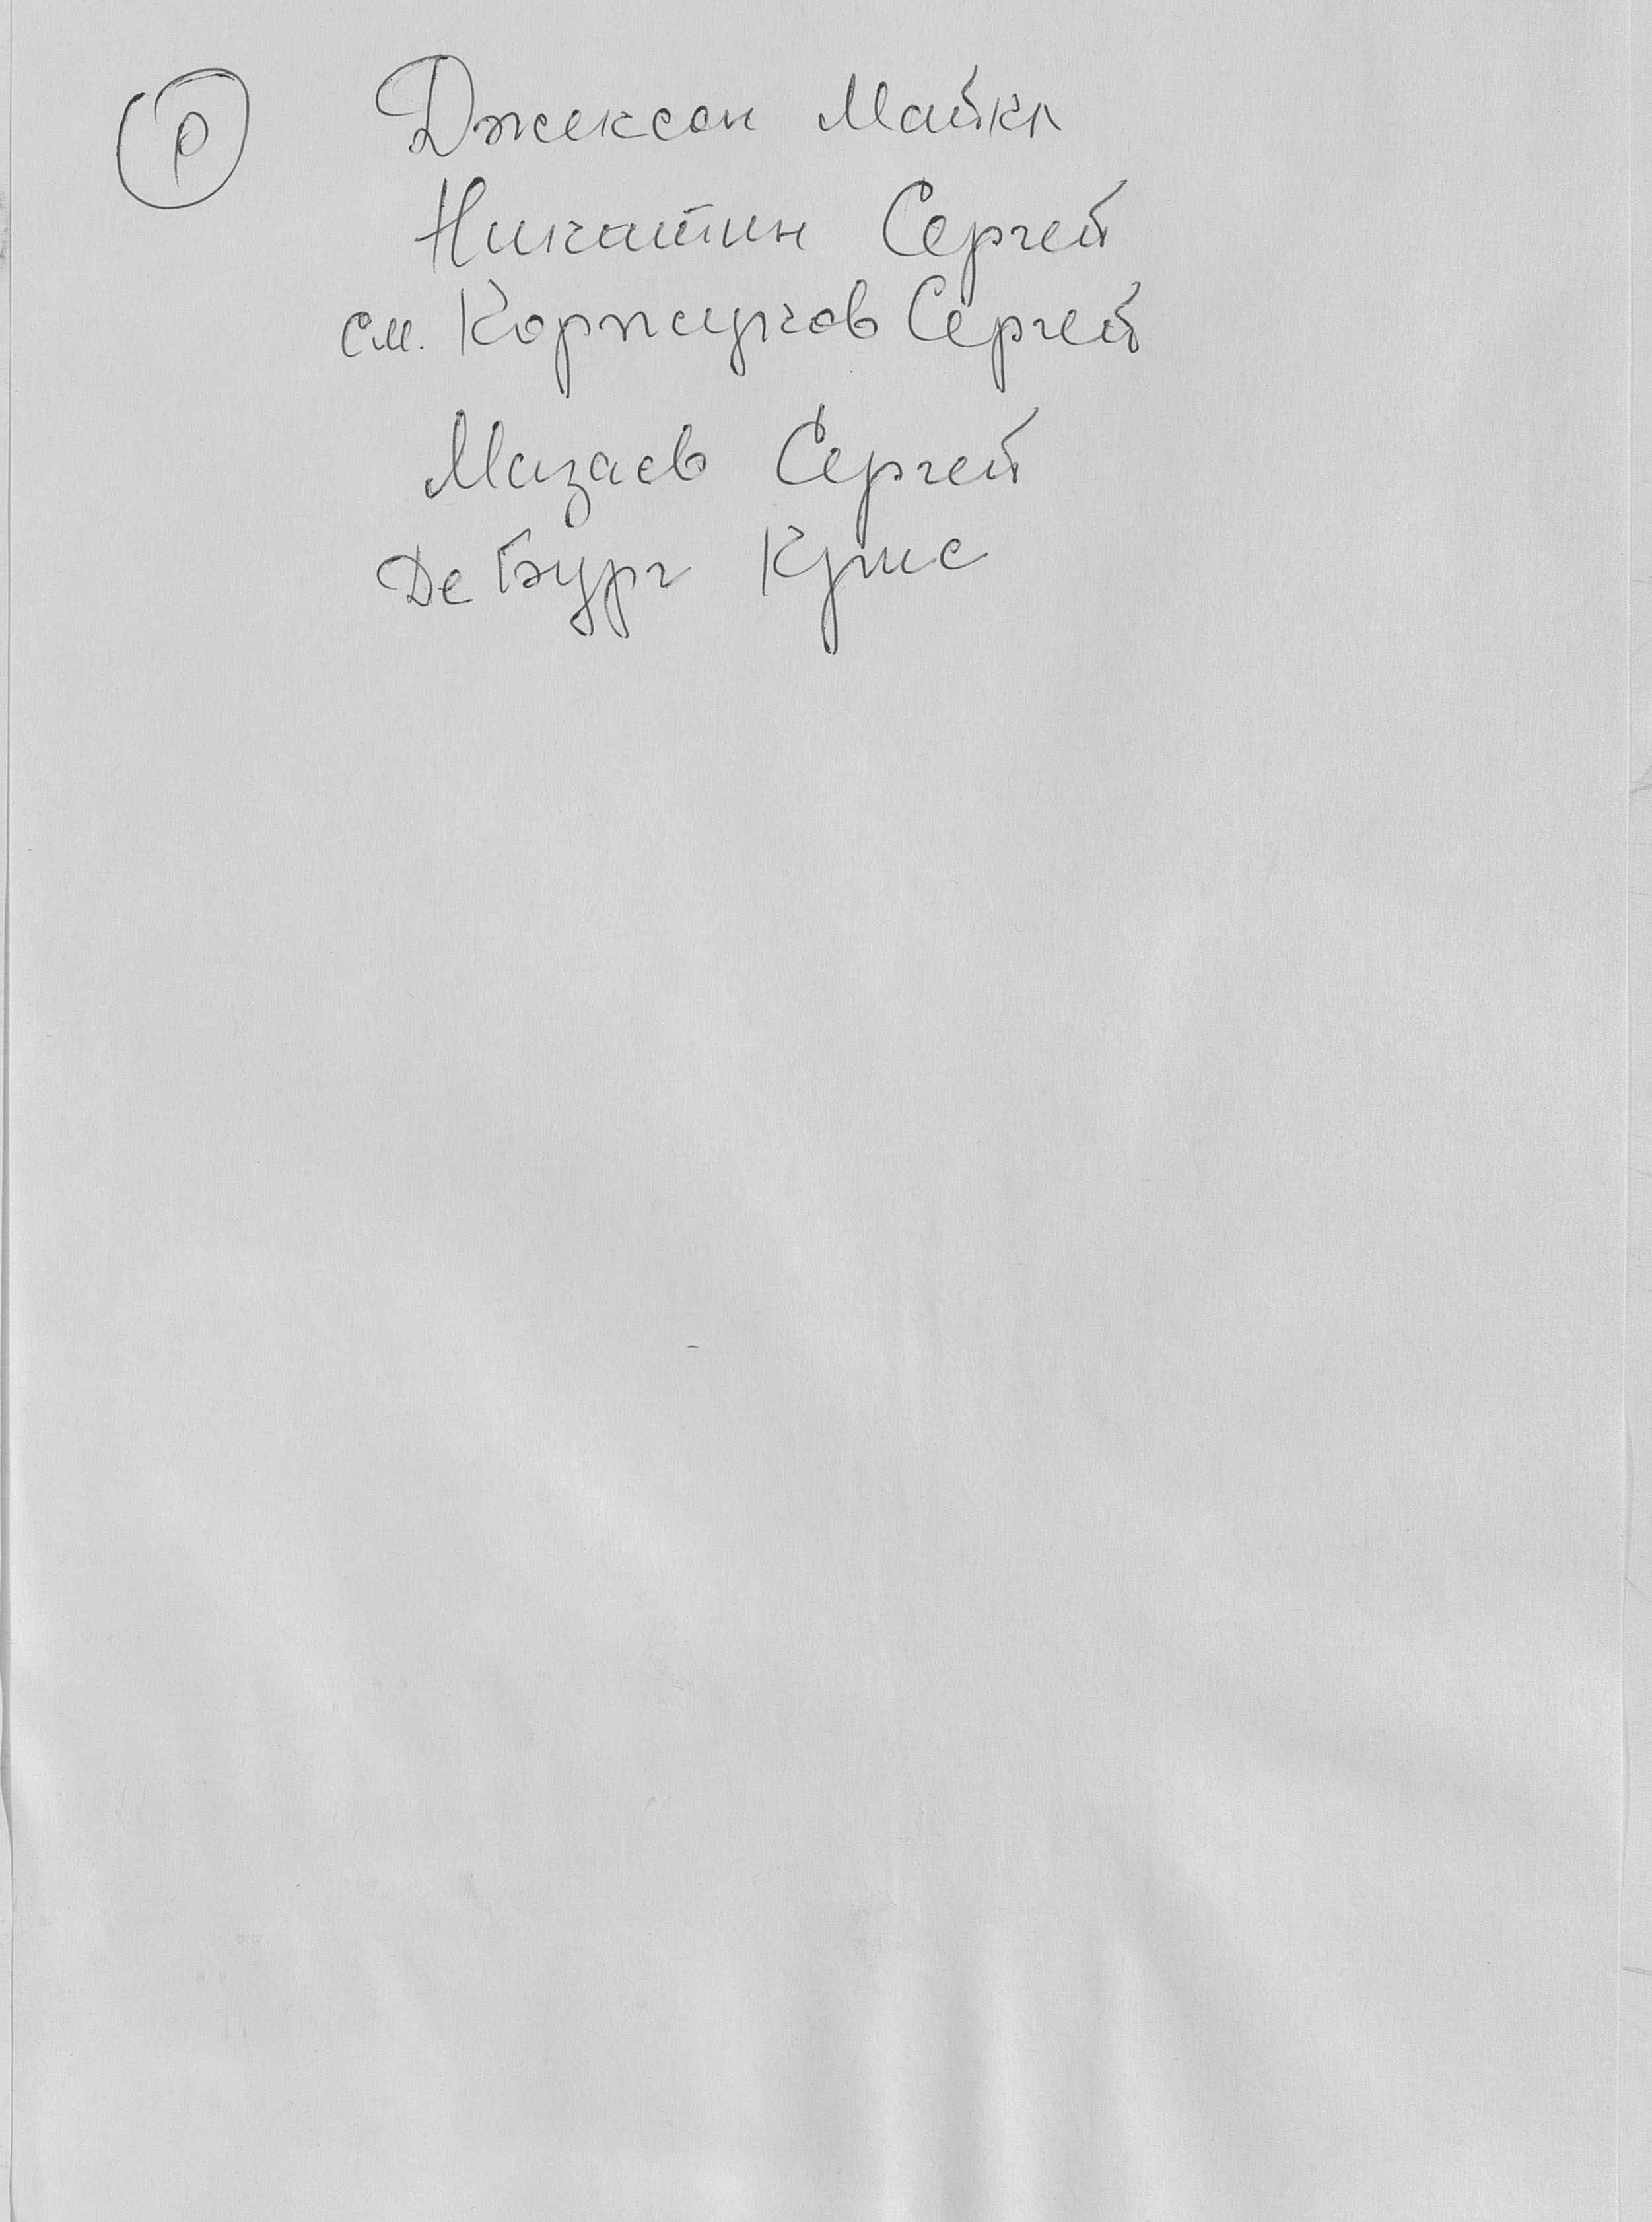 Р Джексон Майкл
Никитин Сергей
см. Коржуков Сергей
Мазаев Сергей
Де Бург Крис